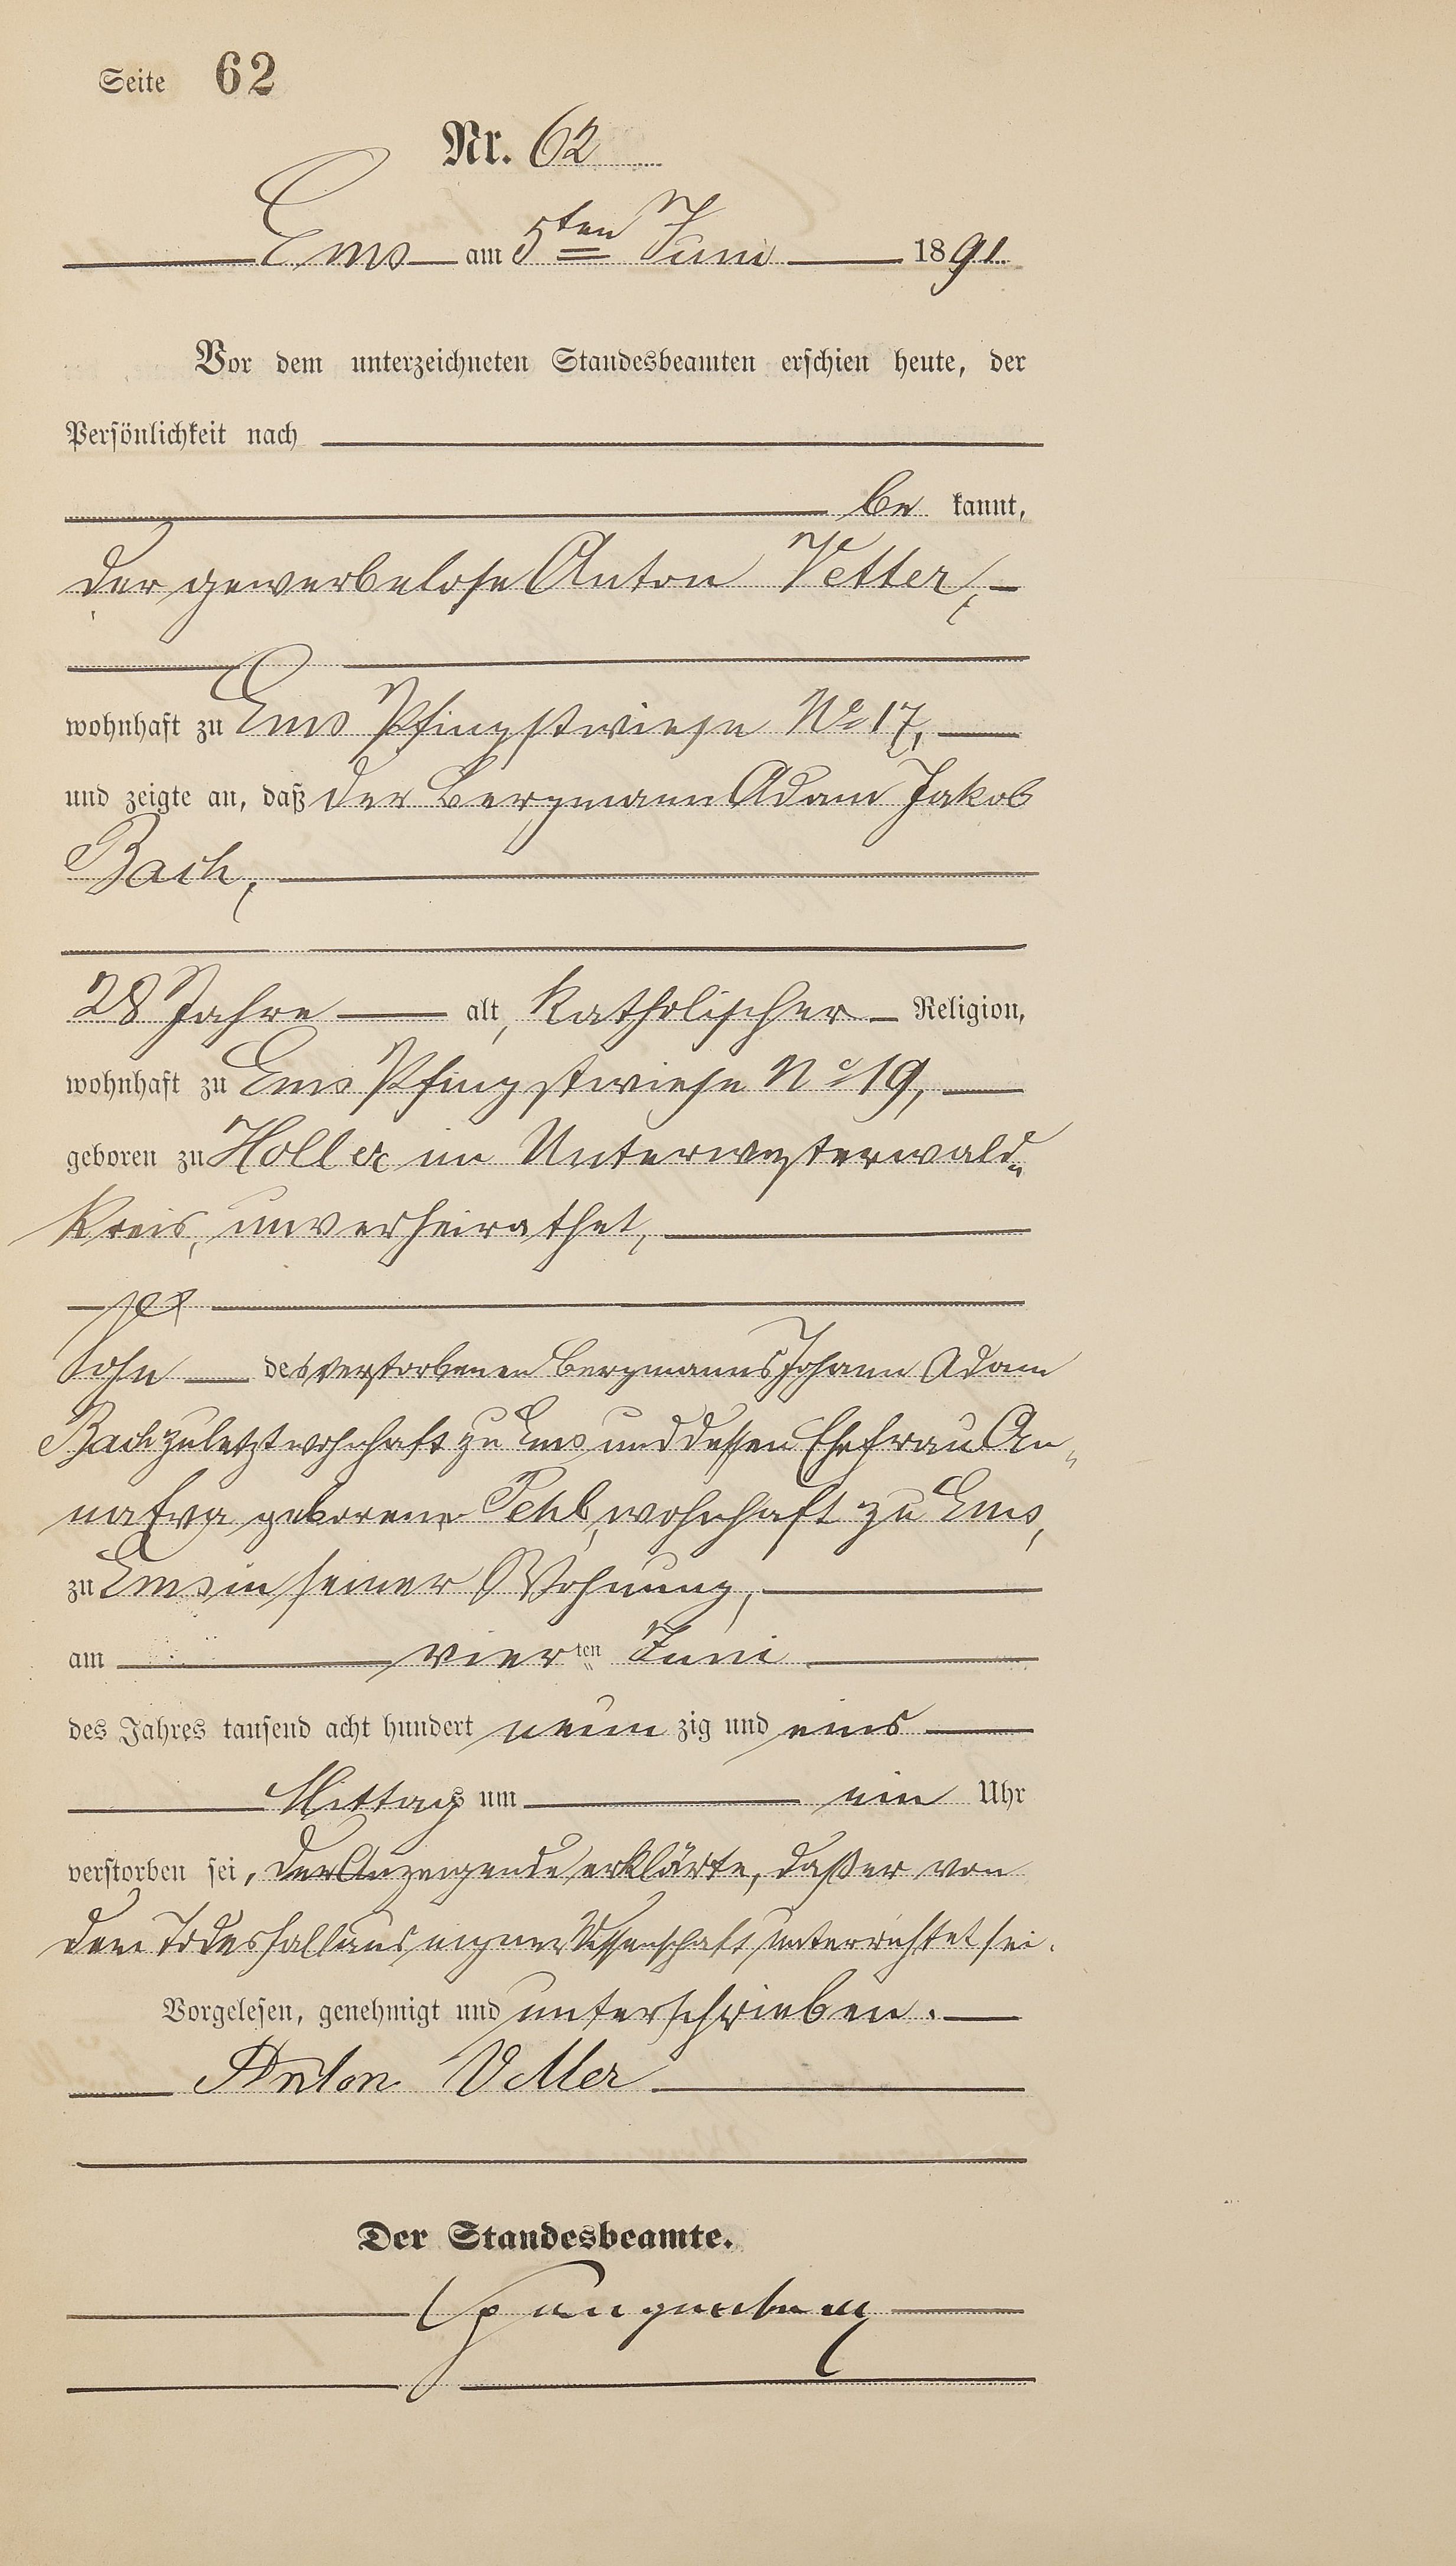 Seite 62
Nr. 62
Ems am 5ten Juni 1891
Vor dem unterzeichneten Standesbeamten erschien heute, der
Persönlichkeit nach
be kannt,
der gewerbelose Anton Vetter,
wohnhaft zu Ems Pfingstwiese No 17,
und zeigte an, daß der Bergmann Adam Jakob
Bach,
28 Jahre alt, katholischer Religion,
wohnhaft zu Ems Pfingstwiese No 19,
geboren zu Holler im Unterwesterwald-
Kreis, unverheirathet,
Sohn des verstorbenen Bergmanns Johann Adam
Bach zuletzt wohnhaft zu Ems und dessen Ehefrau An-
na Eva geborene wohnhaft zu Ems,
zu Ems in seiner Wohnung,
am vier ten Juni
des Jahres tausend acht hundert neun zig und eins
Mittags um ein Uhr
verstorben sei, der Anzeigende erklärte, daß er von
dem Todesfall aus eigner Wissenschaft unterrichtet sei.
Vorgelesen, genehmigt und unterschrieben.
Anton Vetter
Der Standesbeamte.